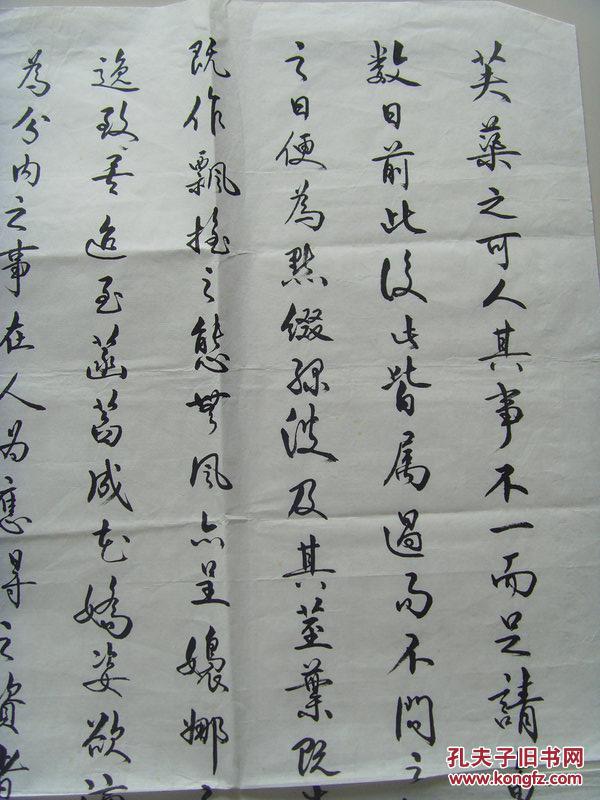 芙蕖之可人其事不一而足請
数日前此後此皆属過而不問之
之日便為點綴緑波及其莖葉既
既作飄搖之態無風亦呈嬝娜
逸致矣迨至菡萏成花嬌姿欲滴
為分内之事在人為應得之資者
孔夫子旧书网
www.kongfz.com